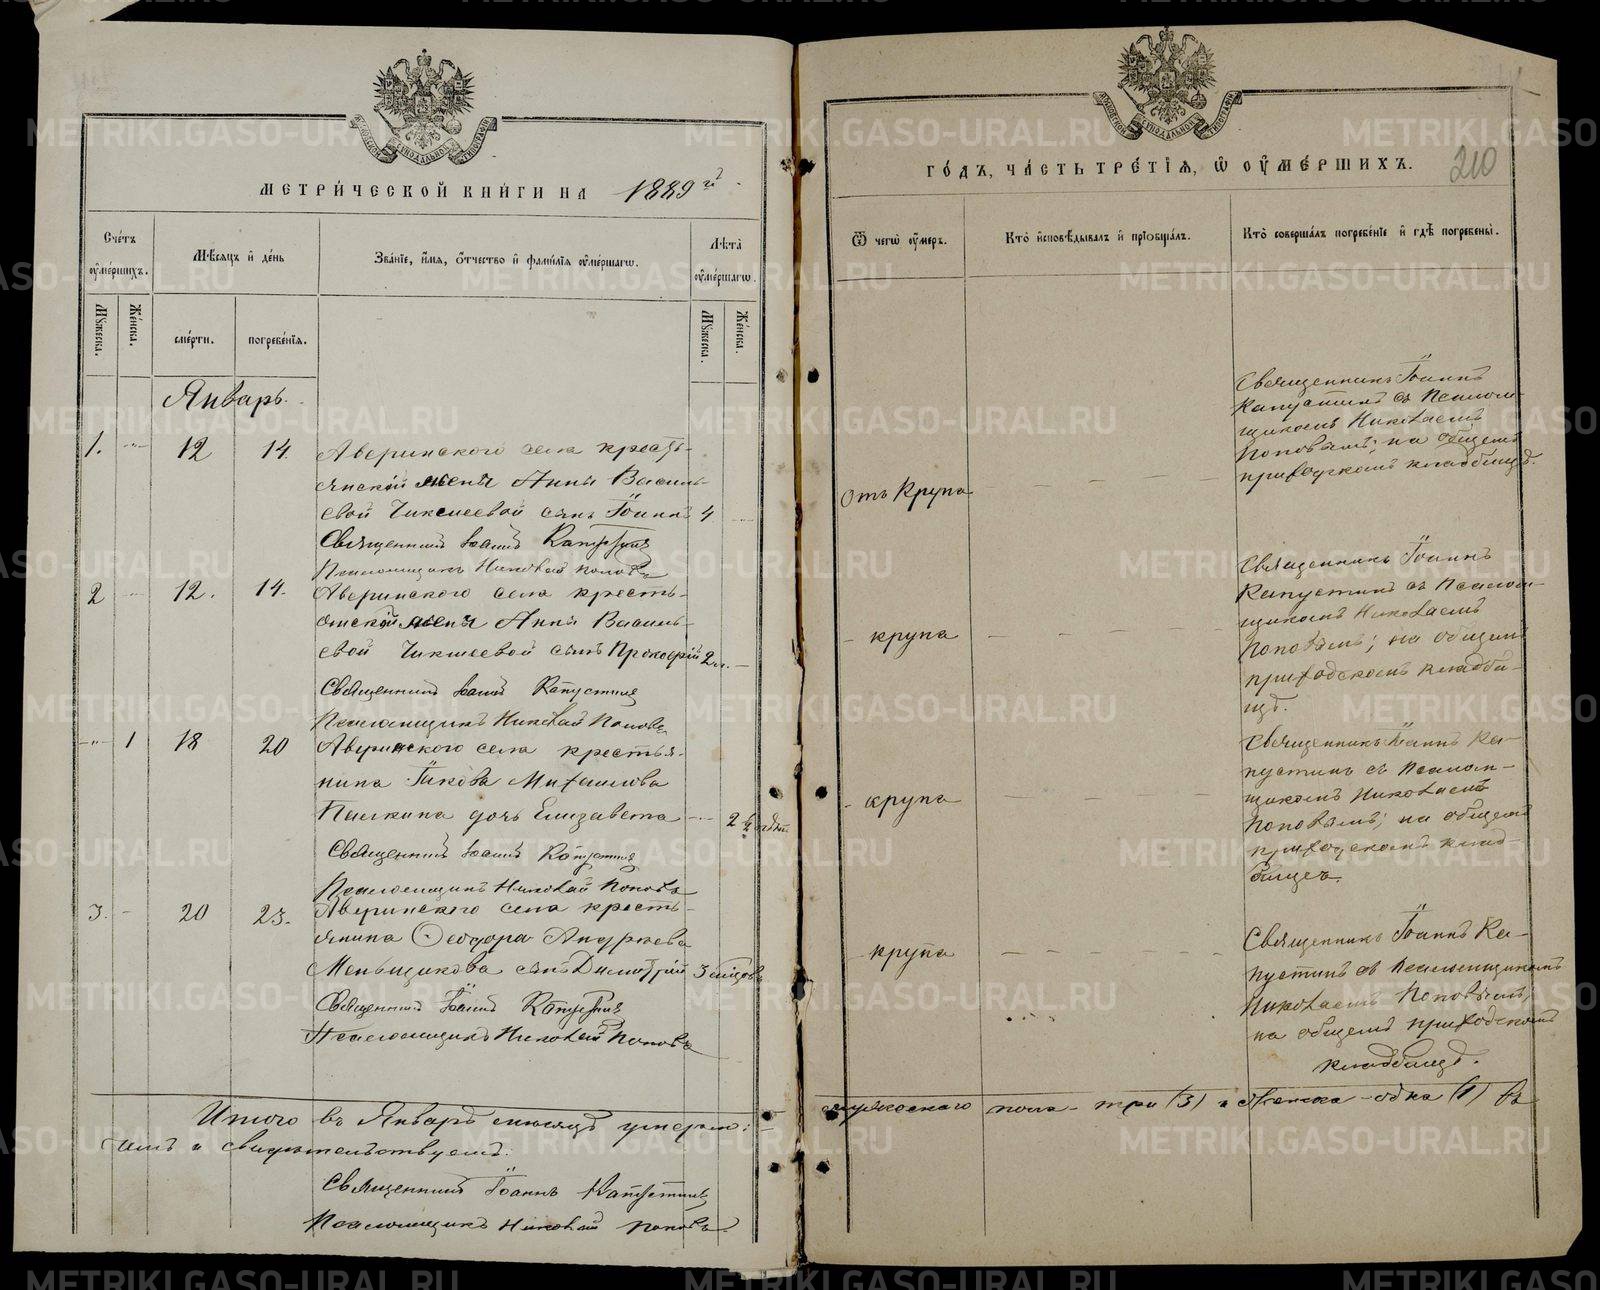 МЕТРИ́ЧЕСКОЙ КНИ́ГИ НА 1889й
Сче́тъ ᲂу҆ме́ршихъ.
Мѣ́сяцъ и҆ де́нь
Зва́нїе, и҆́мѧ, ѻ҆́тчество и҆ фамилїѧ ᲂу҆ме́ршагѡ.
Лѣта̀ ᲂу҆ме́ршагѡ.
Мꙋ́жеска.
Же́нска.
сме́рти.
погребе́нїѧ.
Мꙋ́жеска.
Же́нска.
Январь.
1. 12 14 Аверинскаго села кресть-
янской жены Анны Василь-
евой Чикшеевой сынъ Іоаннъ 4
Священникъ Іоаннъ Капустинъ
Псаломщикъ Николай Поповъ
2 12. 14. Аверинскаго села кресть-
янской жены Анны Василь-
евой Чикшеевой сынъ Прокофій 2 л.
Священникъ Іоаннъ Капустинъ
Псаломщикъ Николай Поповъ
1 18 20 Аверинскаго села крестья-
нина Іакова Михаилова
Палкина дочь Елизавета 2 ½
Священникъ Іоаннъ Капустинъ
Псаломщикъ Николай Поповъ
3. 20 23. Аверинскаго села кресть-
янина Ѳеодора Андреева
Меньщикова сынъ Димитрій 3
Священникъ Іоаннъ Капустинъ
Псаломщикъ Николай Поповъ
Итого въ Январѣ мѣсяцѣ умерло:
чемъ и свидѣтельствуемъ.
Священникъ Іоаннъ Капустинъ
Псаломщикъ Николай Поповъ
ГО́ДЪ, ЧА́СТЬ ТРЕ́ТІѦ, Ѡ҆ ОУ҆МЕ́РШИХЪ.
210
Ѿ чегѡ̀ ᲂу҆́меръ.
Кто̀ и҆сповѣ́дывалъ и҆ прїобща́лъ.
Кто̀ соверша́лъ погребе́нїе и҆ гдѣ̀ погребены̀.
Священникъ Іоаннъ
Капустинъ съ Псалом-
щикомъ Николаемъ
Поповымъ; на общемъ
приходскомъ кладбищѣ.
Отъ Крупа
Священникъ Іоаннъ
Капустинъ съ Псалом-
щикомъ Николаемъ
- крупа
Поповымъ; на общемъ
приходскомъ кладби-
щѣ.
Священникъ Іоаннъ Ка-
пустинъ съ Псалом-
щикомъ Николаемъ
- крупа
Поповымъ; на общемъ
приходскомъ клад-
бищѣ.
Священникъ Іоаннъ Ка-
крупа
пустинъ съ Псаломщикомъ
Николаемъ Поповымъ,
на общемъ приходскомъ
кладбищѣ.
мужескаго пола - три (3) и женска - одна (1) въ
METRIKI.GASO-URAL.RU